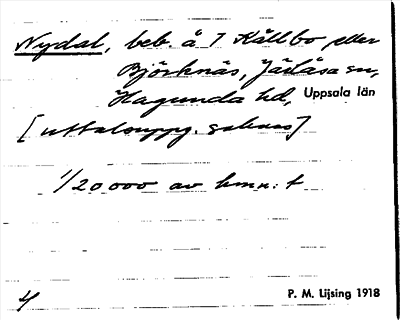 Nydal, beb. å 7 Källbo eller
Björknäs, Järlåsa sn,
Hagunda hd, Uppsala län
[uttalsuppg. saknas]
1/20000 av hmn: t
4/ P. M. Lijsing 1918